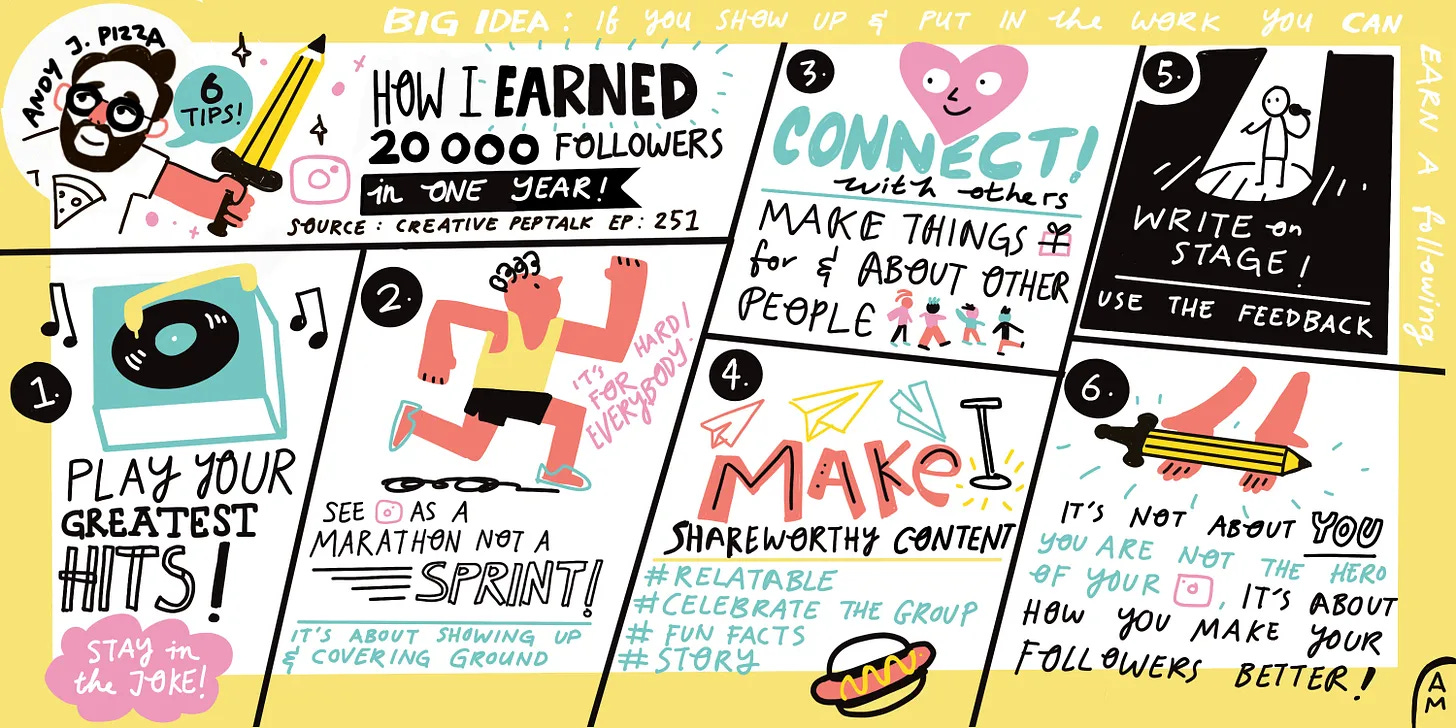 BIG IDEA: If YOU SHOW UP & PUT IN the WORK YOU CAN
EARN A following
ANDY J. PIZZA
6
TIPS!
HOW I EARNED
20 000 FOLLOWERS
in ONE YEAR!
SOURCE: CREATIVE PEPTALK EP: 251
1.
PLAY YOUR
GREATEST
HITS!
STAY in
the JOKE!
2.
IT'S HARD!
FOR
EVERYBODY!
SEE AS A
MARATHON NOT A
SPRINT!
IT'S ABOUT SHOWING UP
& COVERING GROUND
3.
CONNECT!
with others
MAKE THINGS
for & ABOUT OTHER
PEOPLE
4.
MAKe
SHAREWORTHY CONTENT
#RELATABLE
#CELEBRATE THE GROUP
# FUN FACTS
# STORY
5.
WRITE on
STAGE!
USE THE FEEDBACK
6.
IT'S NOT ABOUT YOU
YOU ARE NOT THE HERO
OF YOUR , IT'S ABOUT
HOW YOU MAKE YOUR
FOLLOWERS BETTER!
AM